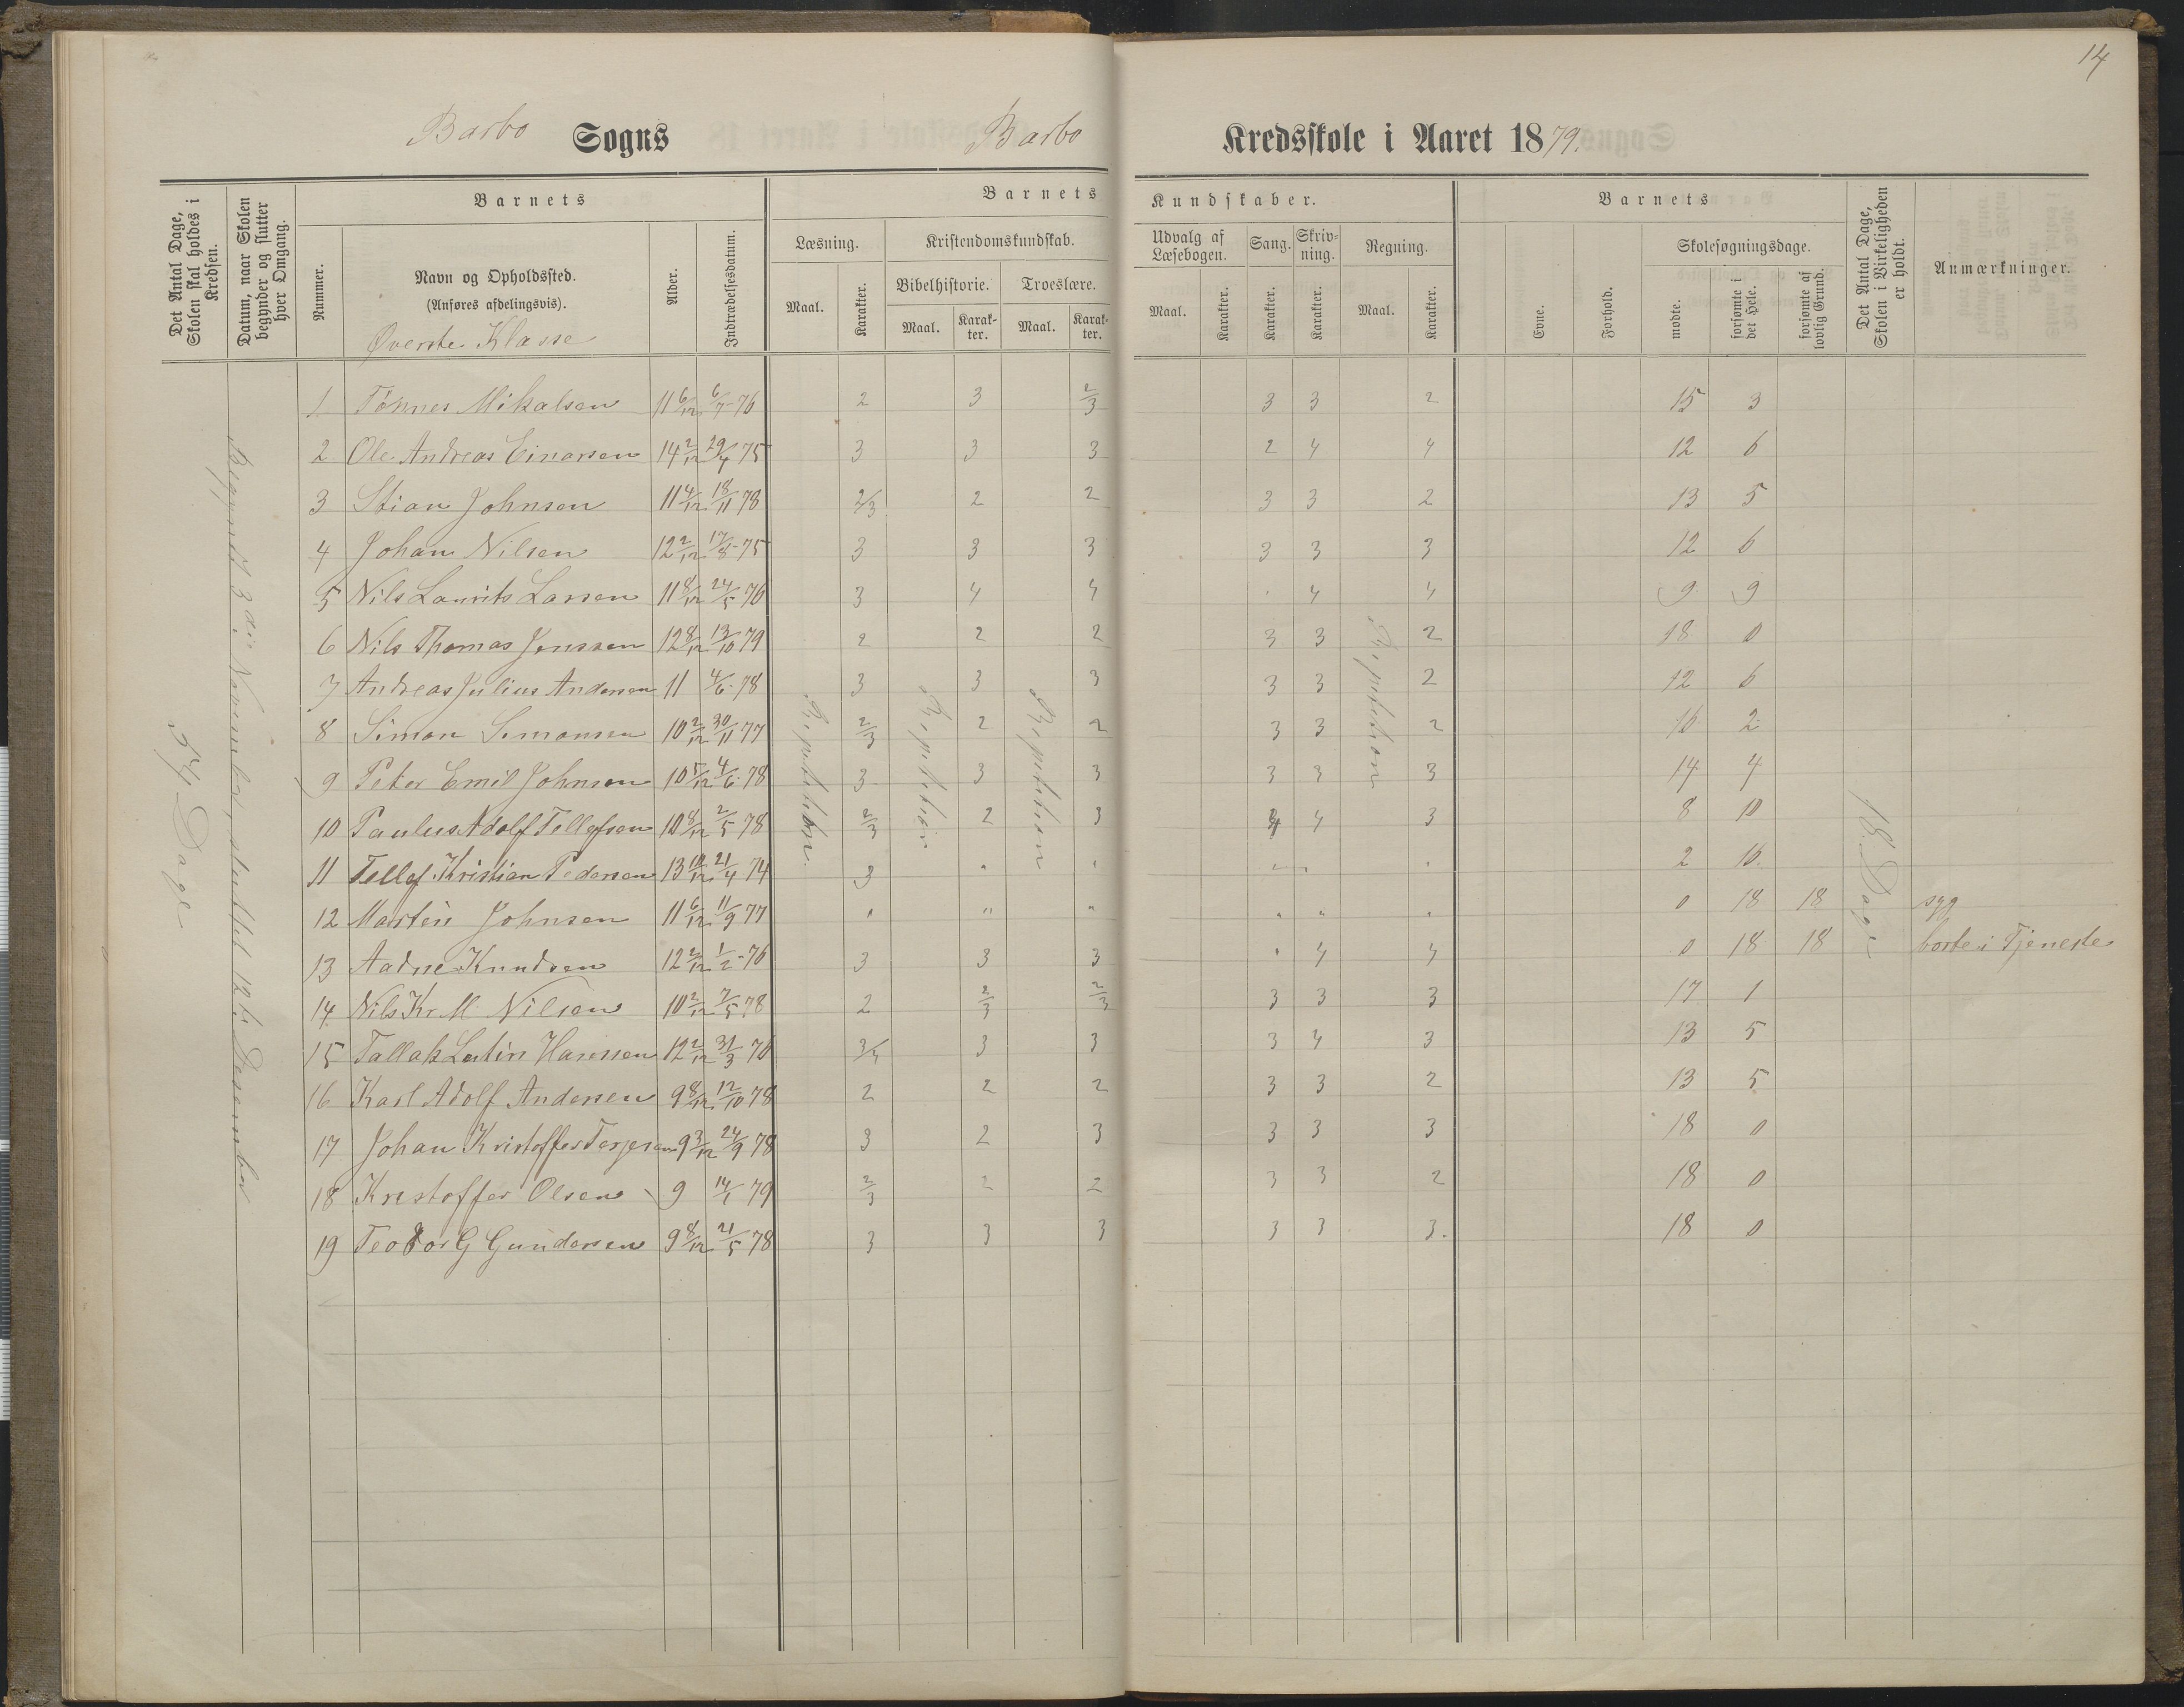 14
Barbo Sogns Barbo Kredsskole i Aaret 1879.
Det Antal Dage, Skolen skal holdes i Kredsen.
Datum, naar Skolen begynder og slutter hver Omgang.
Nummer.
Barnets
Navn og Opholdssted.
(Anføres afdelingsvis).
Øverste Klasse
Alder.
Indtrædelsesdatum.
Barnets Kundskaber.
Læsning.
Maal.
Karakter.
Kristendomskundskab.
Bibelhistorie.
Maal.
Karakter.
Troeslære.
Maal.
Karakter.
Udvalg af Læsebogen.
Maal.
Karakter.
Sang.
Karakter.
Skrivning.
Karakter.
Regning.
Maal.
Karakter.
Barnets
Evne.
Forhold.
Skolesøgningsdage.
mødte.
forsømte i det Hele.
forsømte af lovlig Grund.
Det Antal Dage, Skolen i Virkeligheden er holdt.
Anmærkninger.
54 Dage
Begyndt 3die November, sluttet 12te Desember
Repetition
Repetition
Repetition
Repetition
18 Dage
1 Tønnes Mikalsen 11 6/12 6/7-76 2 3 2/3 3 3 2 15 3
2 Ole Andreas Einarsen 14 2/12 29/4 75 3 3 3 2 4 4 12 6
3 Stian Johnsen 11 4/12 18/11 78 2/3 2 2 3 3 2 13 5
4 Johan Nilsen 12 2/12 17/8-75 3 3 3 3 3 3 12 6
5 Nils Laurits Larsen 11 8/12 24/5 76 3 4 4 . 4 4 9 9
6 Nils Thomas Jenssen 12 8/12 13/10 79 2 2 2 3 3 2 18 0
7 Andreas Julius Andersen 11 4/6-78 3 3 3 3 3 2 12 6
8 Simon Simonsen 10 2/12 30/11 77 2/3 2 2 3 3 2 16 2
9 Peter Emil Johnsen 10 5/12 4/6-78 3 3 3 3 3 3 14 4
10 Paulus Adolf Tellefsen 10 8/12 2/5 78 2/3 2 3 4 4 3 8 10
11 Tellef Kristian Pedersen 13 10/12 21/4 74 3 " " " " " 2 16
12 Martin Johnsen 11 6/12 11/9 77 " " " " " " 0 18 18 syg
13 Aadne Knudsen 12 2/12 1/2-76 3 3 3 . 4 4 0 18 18 borte i Tjeneste
14 Nils Kr. M. Nilsen 10 2/12 7/5 78 2 2/3 2/3 3 3 3 17 1
15 Tallak Hanssen 12 2/12 31/3 76 3/4 3 3 3 4 3 13 5
16 Karl Adolf Andersen 9 8/12 12/10 78 2 2 2 3 3 2 13 5
17 Johan Kristoffer Terjesen 9 3/12 24/9 78 3 2 3 3 3 3 18 0
18 Kristoffer Olsen 9 14/1 79 2/3 2 2 3 3 2 18 0
19 Teodor G Gundersen 9 8/12 21/5 78 3 3 3 3 3 3. 18 0